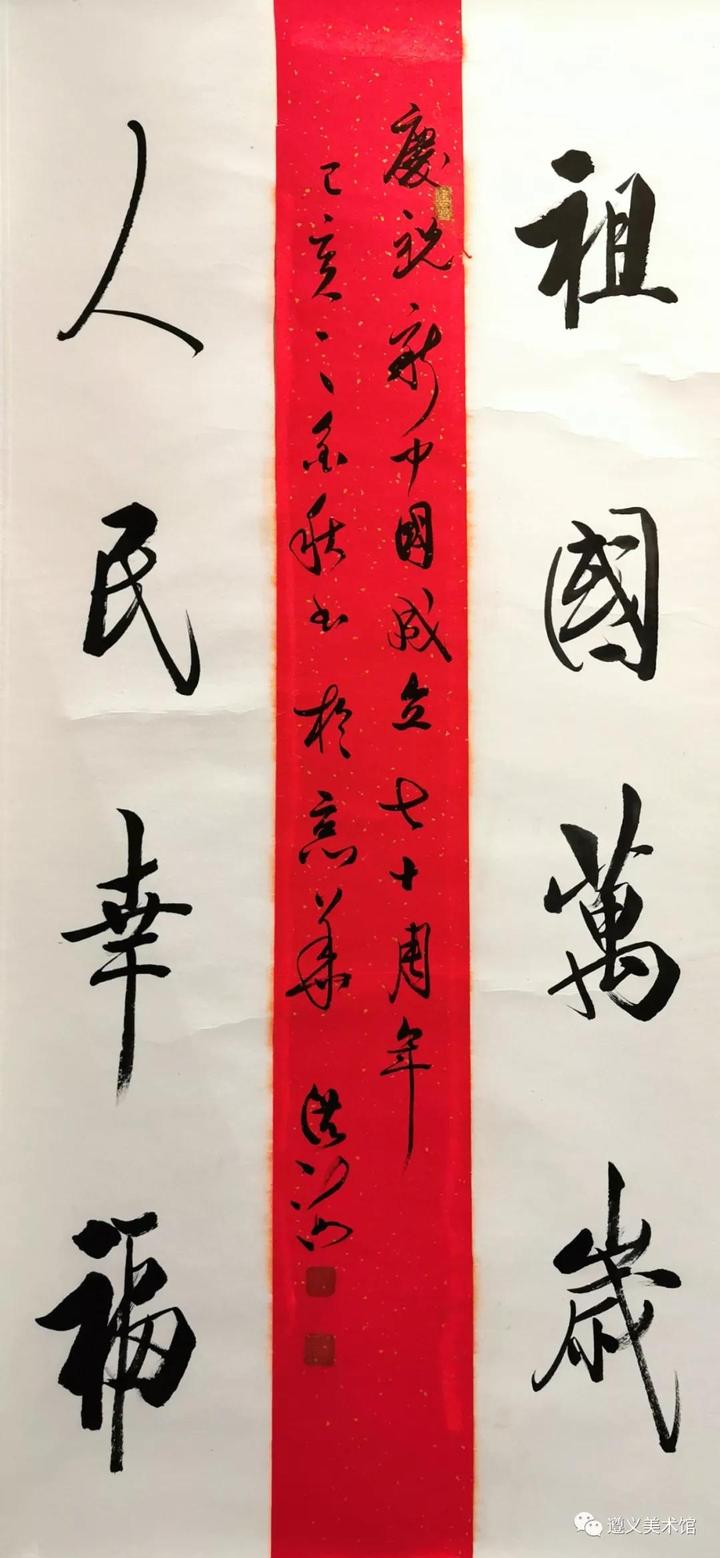 祖國萬歲
慶祝新中國成立七十周年
己亥金秋书於京華
人民幸福
遵义美术馆